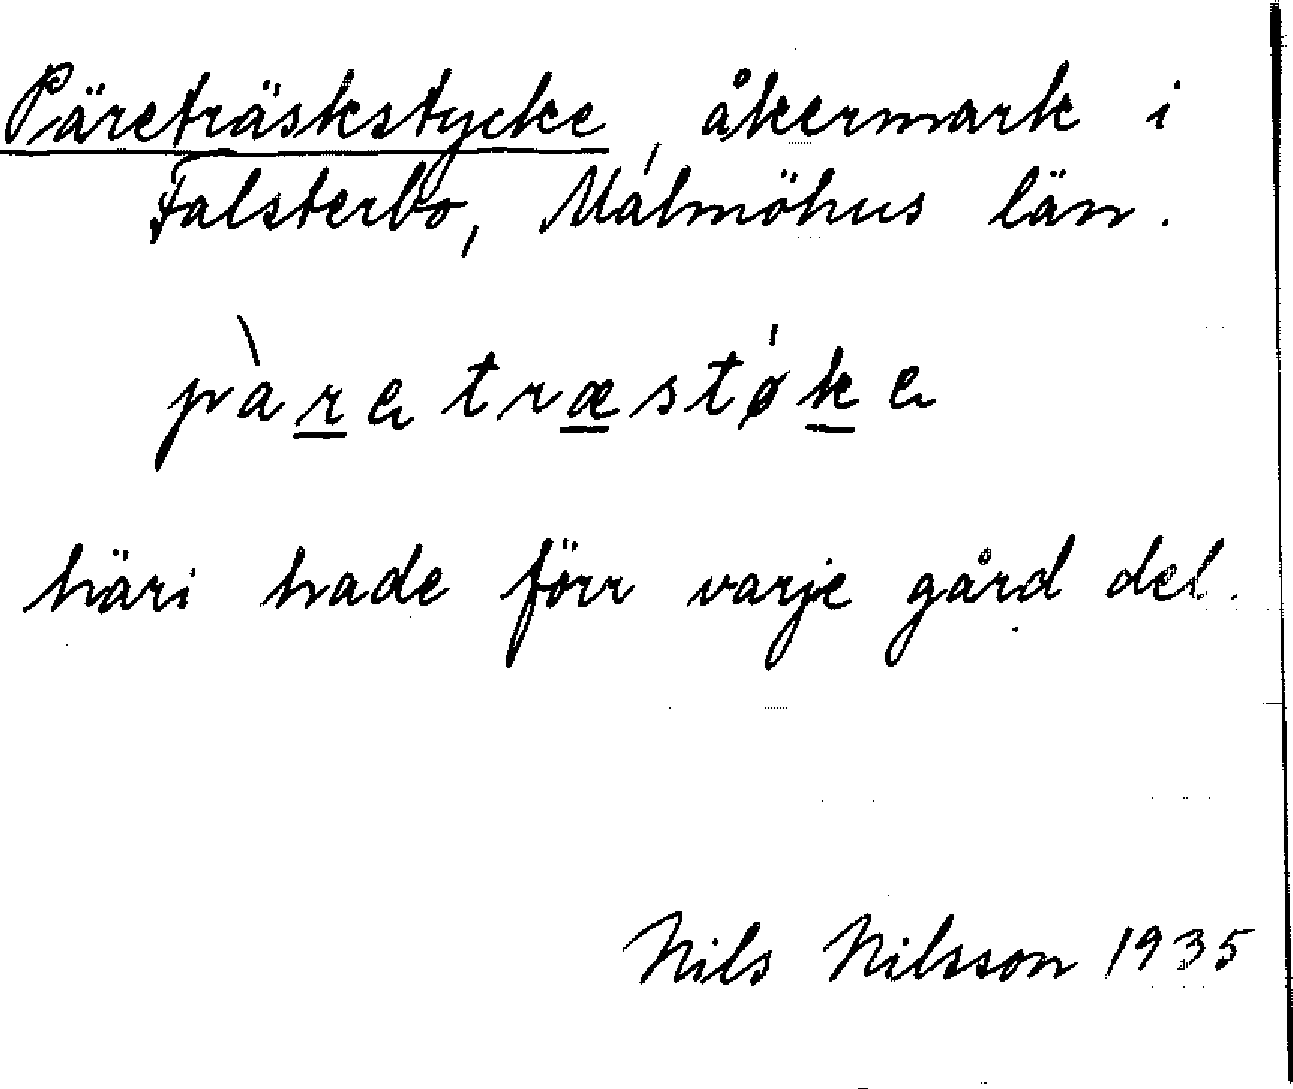 Päreträskstycke, åkermark i
Falsterbo, Malmöhus län.
pàretræstǿke
häri hade förr varje gård del.
Nils Nilsson 1935